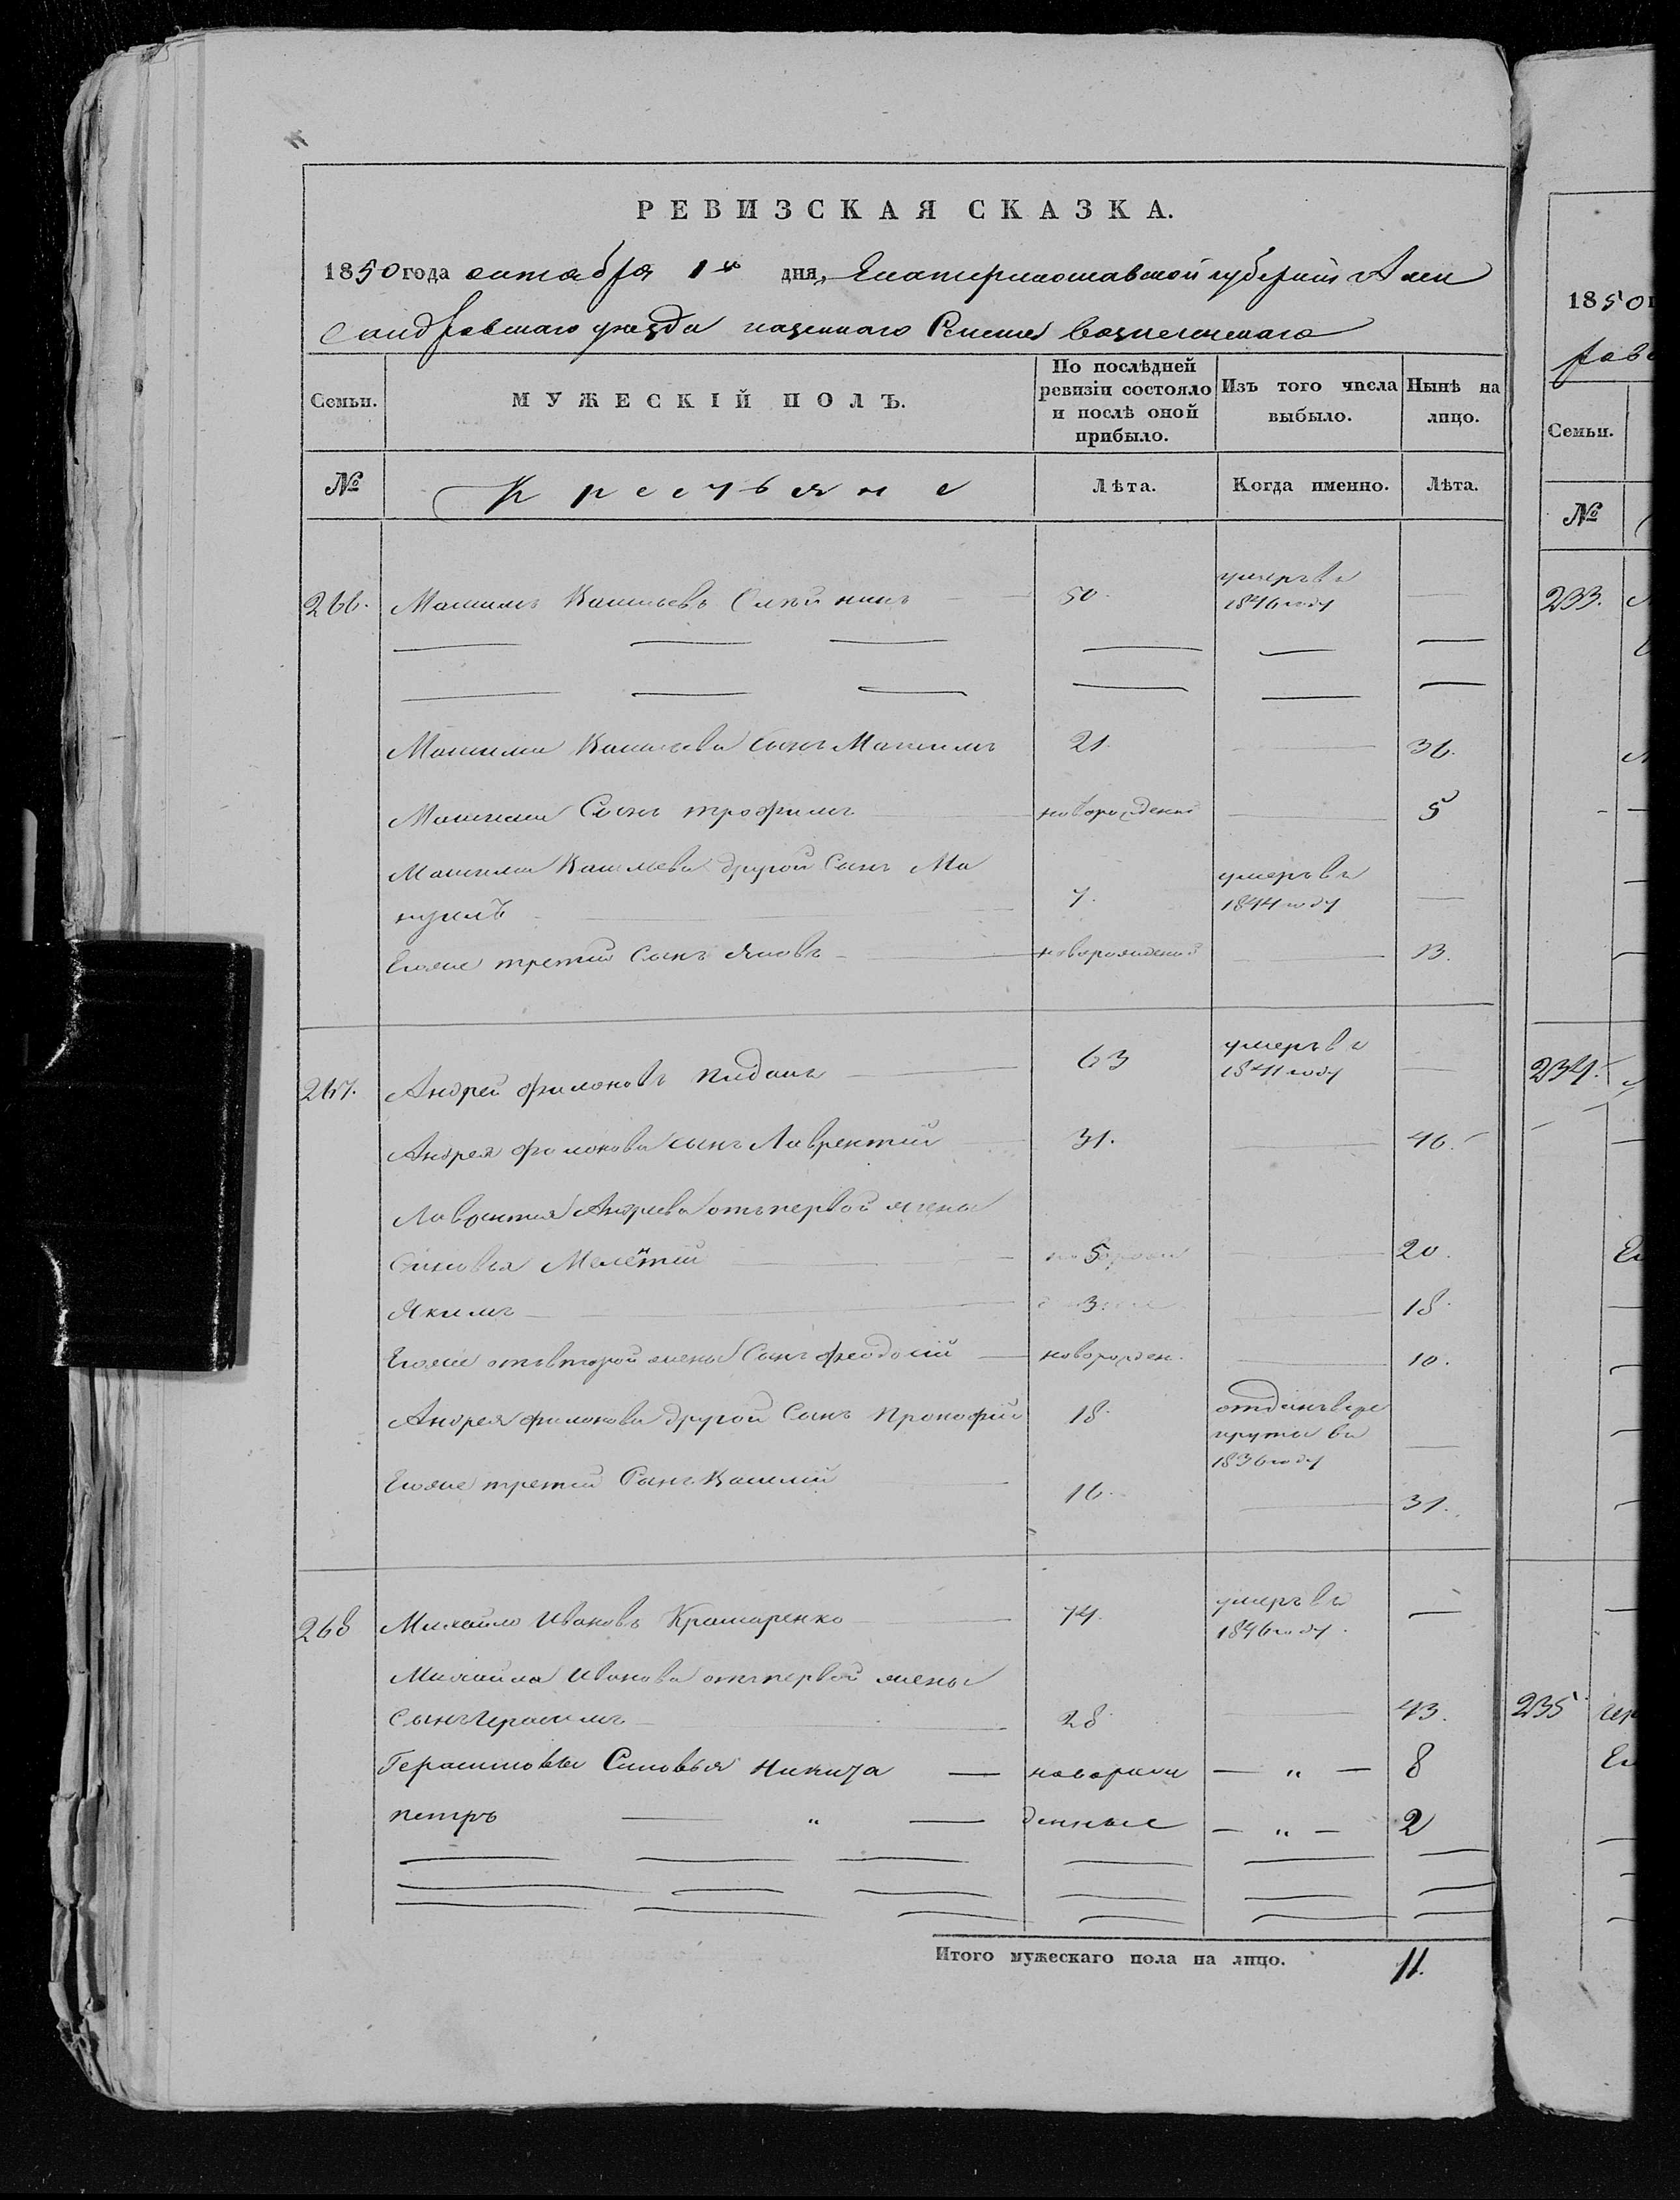 РЕВИЗСКАЯ СКАЗКА.
1850 года октября 1го дня, Екатеринославской губернии Алек
сандровскаго уезда казеннаго Селения Вознесенскаго
Семьи.
МУЖЕСКІЙ ПОЛЪ.
По послѣдней ревизіи состояло и послѣ оной прибыло.
Изъ того числа выбыло.
Нынѣ на лицо.
№
Крестьяне
Лѣта.
Когда именно.
Лѣта.
266. Максимъ Васильевъ 50. умеръ въ 1846 году
Максима Васильева сынъ Максимъ 21. 36.
Максима Сынъ трофимъ новорожденный 5
Максима Васильева другой Сынъ Ма
нуилъ 7. умеръ въ 1844 году
Егоже третий Сынъ Яковъ новорожденный 13.
267. Андрей филоновъ 63 умеръ въ 1841 году
Андрея филонова сынъ Лаврентий 31. 46.
Лаврентия Андреева отъ первой жены
Синовья Мелетий 5 20.
Якимъ 3. 18.
Егоже отъ второй жены Сынъ феодосий новорожден. 10.
Андрея филонова другой Сынъ Прокофий 18. отданъ въ ре
круты въ 1836 году
Егоже третий Сынъ Василий 16. 31.
268 Михайло Ивановъ Крамаренко 74. умеръ въ 1846 году.
Михайла Иванова отъ первой жены
Сынъ Герасимъ 28. 43.
Герасимовы Синовья Никита новорож — „ — 8
петръ „ денные — „ — 2
Итого мужескаго пола на лицо. 11.
1850
Семьи.
№
233.
234.
235